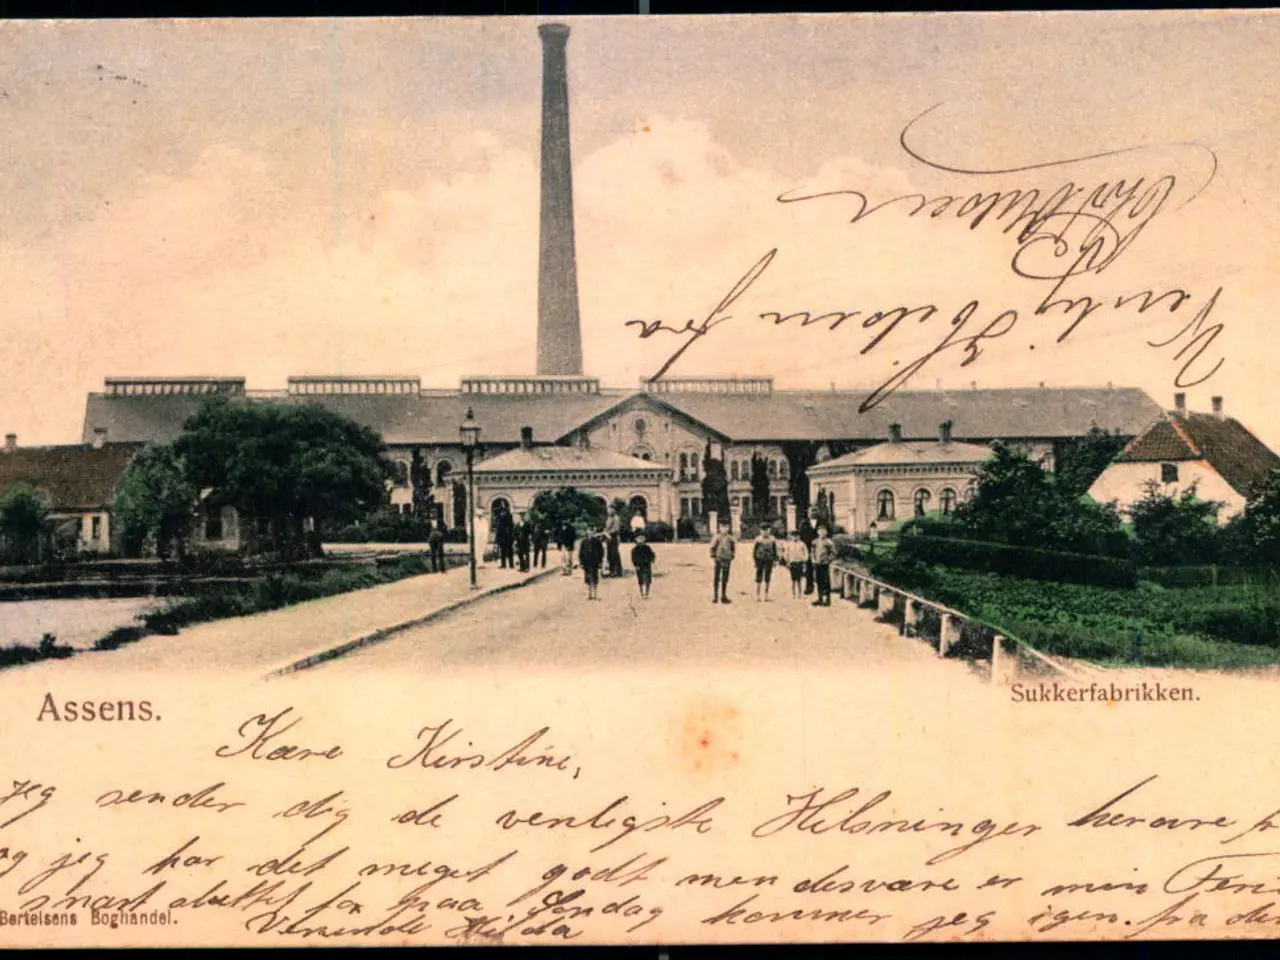 Assens.
Sukkerfabrikken.
Kære Kirstine,
jeg sender dig de venligste Hilsninger herovre fr
og jeg har det meget godt men desværre er min Feri
snart sluttet for paa Søndag kommer jeg igen. fra din
Veninde Hilda
Bertelsens Boghandel.
Venlig Hilsen fra